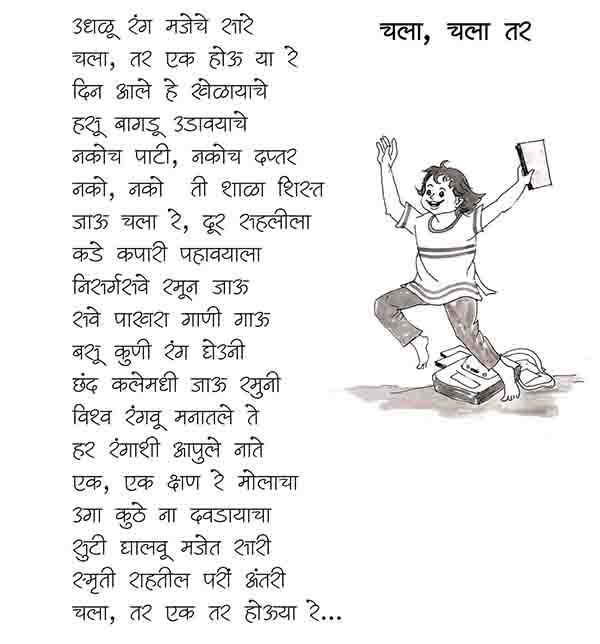 चला, चला तर
उधळू रंग मजेचे सारे
चला, तर एक होऊ या रे
दिन आले हे खेळायाचे
हसू बागडू उडावयाचे
नकोच पाटी, नकोच दप्तर
नको, नको ती शाळा शिस्त
जाऊ चला रे, दूर सहलीला
कडे कपारी पहावयाला
निसर्गसवे रमून जाऊ
सवे पाखरा गाणी गाऊ
बसू कुणी रंग घेउनी
छंद कलेमधी जाऊ रमुनी
विश्व रंगवू मनातले ते
हर रंगाशी आपुले नाते
एक, एक क्षण रे मोलाचा
उगा कुठे ना दवडायाचा
सुटी घालवू मजेत सारी
स्मृती राहतील परीं अंतरी
चला, तर एक तर होऊया रे...